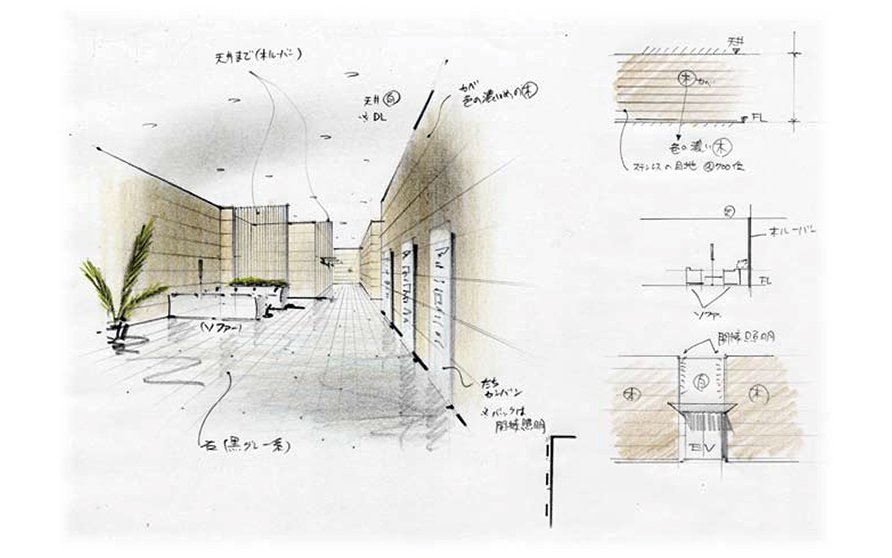 天井まで(木ルーバー)
天井(白)
※DL
カベ
色の濃いめの(木)
(ソファー)
石(黒グレー系)
たち
カンバン
※バックは
間接照明
天井
(木)カベ
FL
色の濃い(木)
ステンレスの目地
木ルーバー
FL
ソファー
間接照明
(木)
(白)
(木)
EV